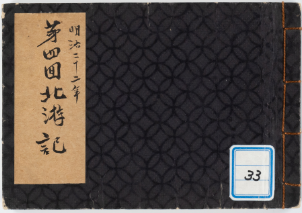 明治二十二年
第四回北游記
33